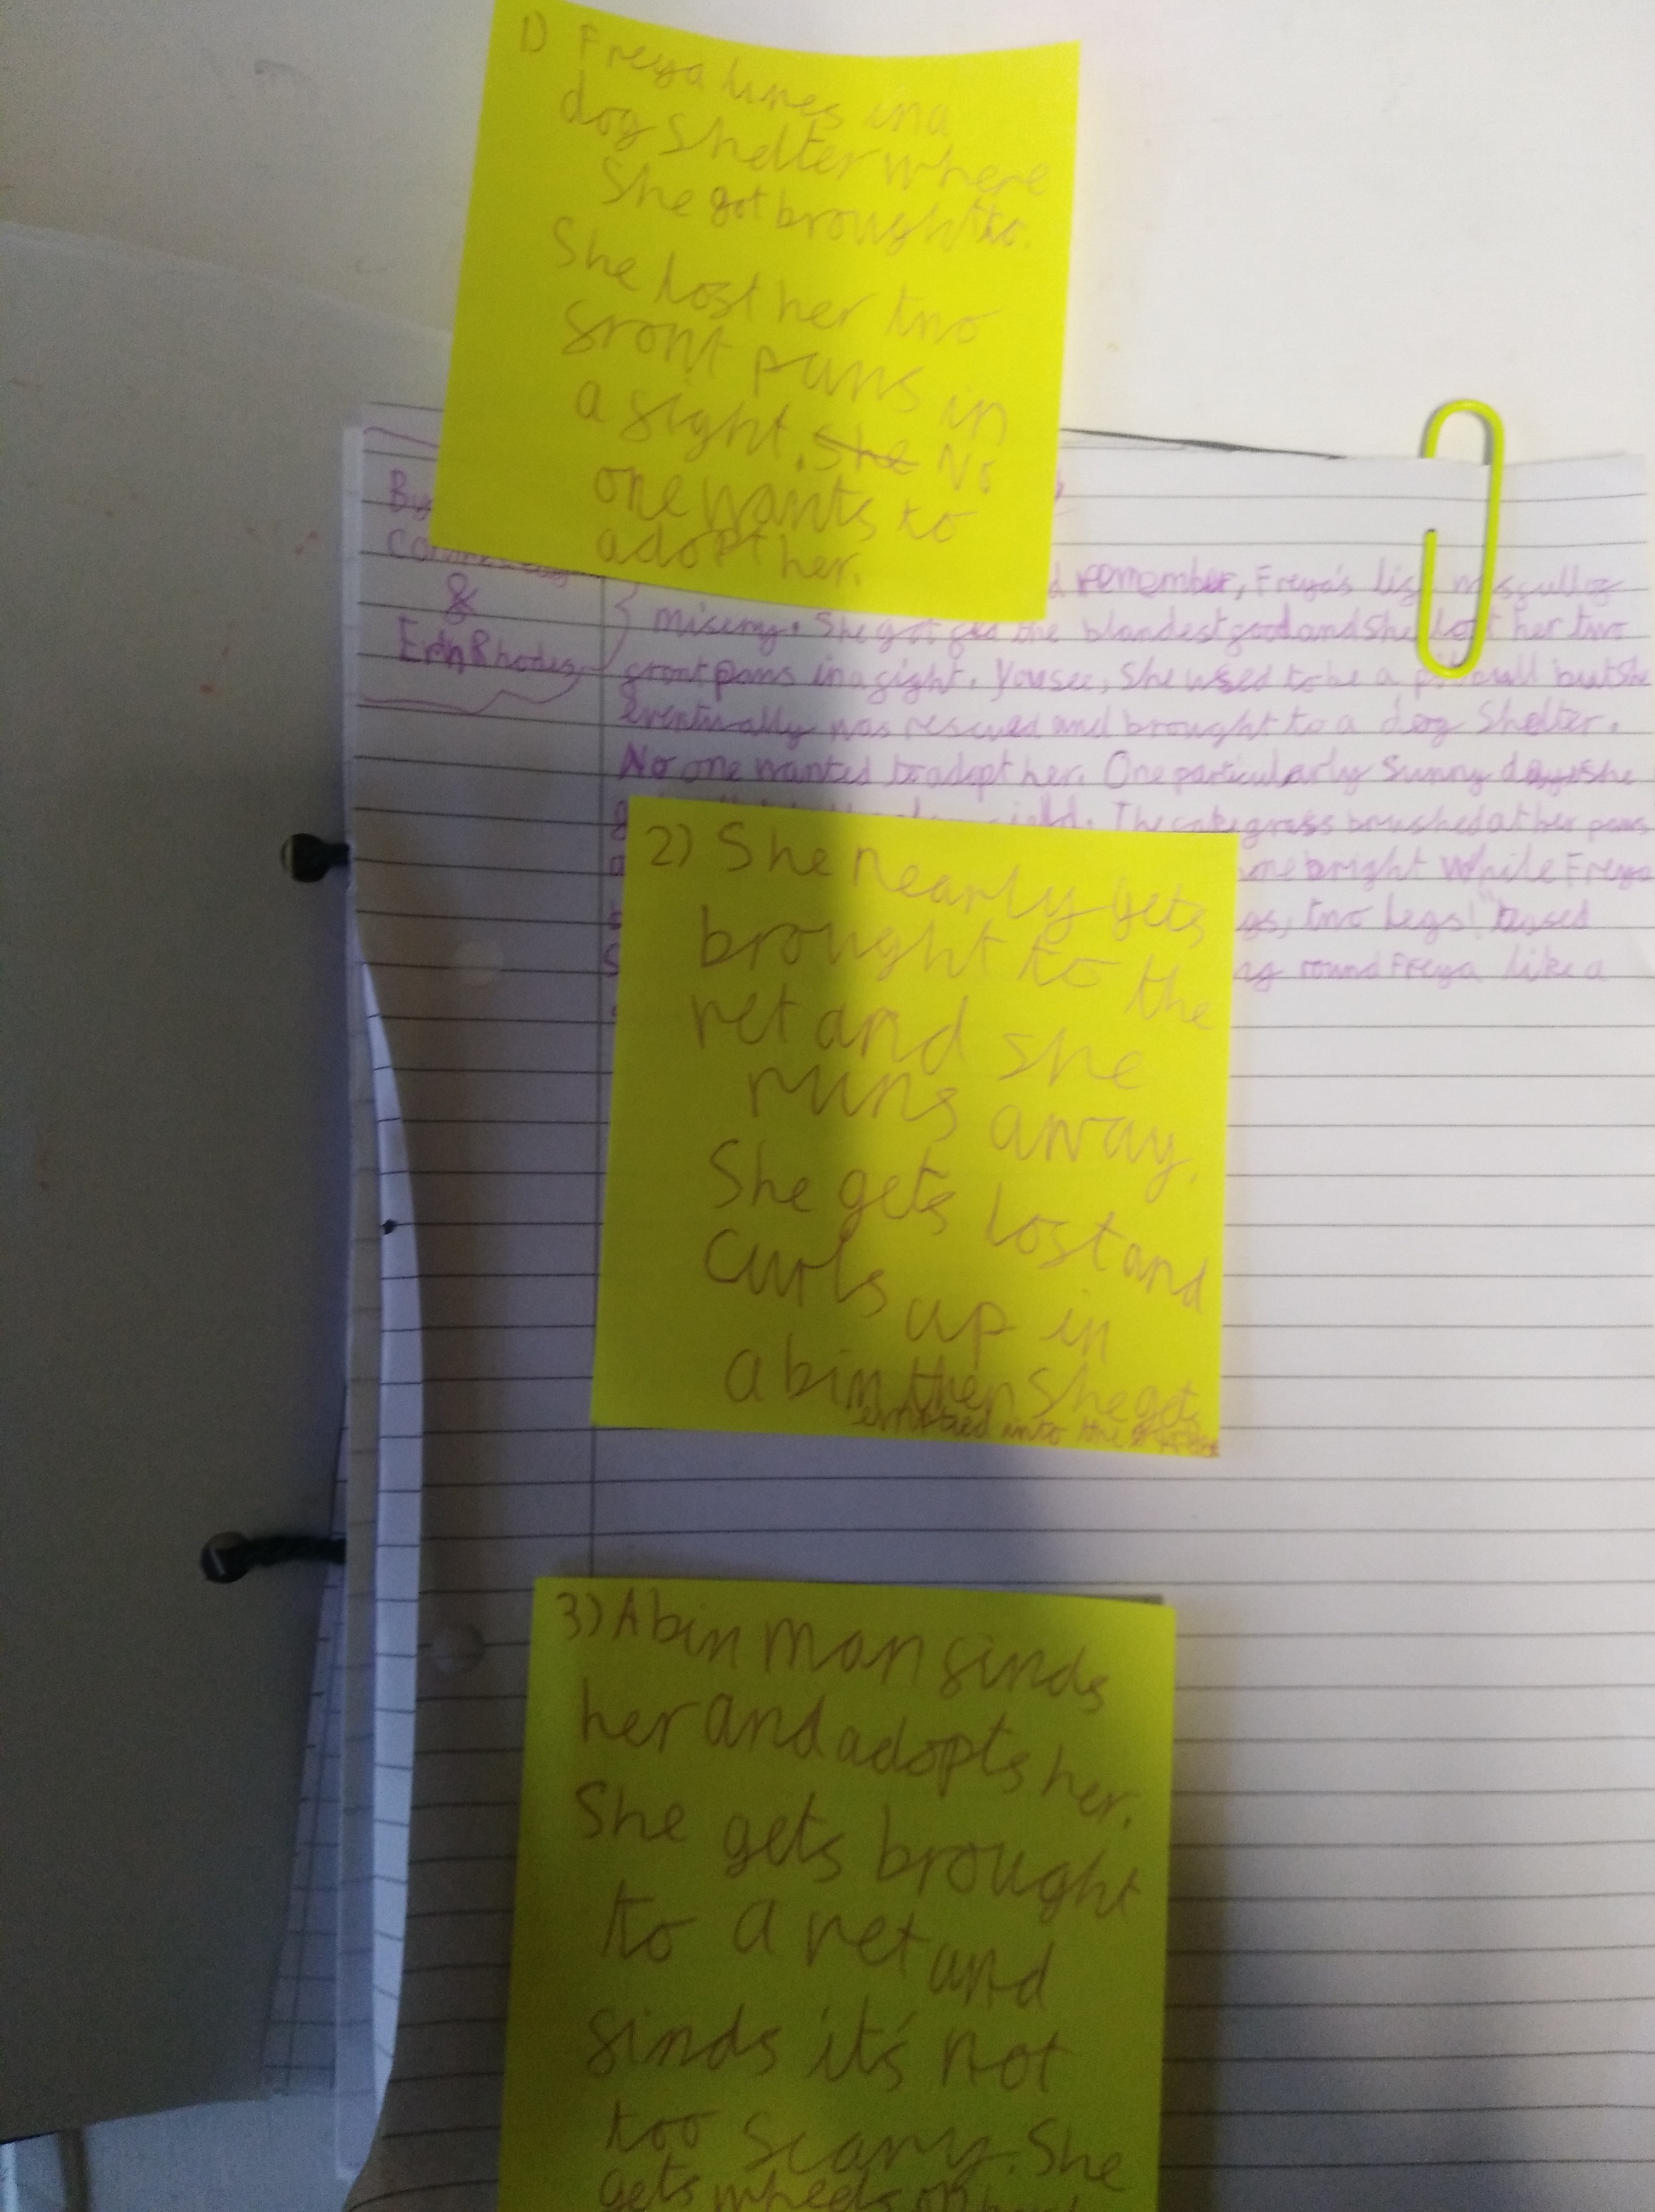 1) Freya lives in a
dog shelter where
She got brought to.
She lost her two
front paws in
a fight. She No
one wants to
adopt her.
By
&
Erin Rhodes
remember, Freya's life was full of
misery. She got fed the blandest food and she lost her two
front paws in a fight. You see, She used to be a pitbull but she
eventually was rescued and brought to a dog Shelter.
No one wanted to adopt her. One particularly Sunny day she
field. The grass brushed at her paws
bright while Freya
two Legs!"
round Freya like a
2) She nearly gets
brought to the
vet and she
runs away.
She gets lost and
curls up in
a bin then She gets
into the
3) A bin man finds
her and adopts her.
She gets brought
to a vet and
finds it's not
too scary. She
gets wheels on